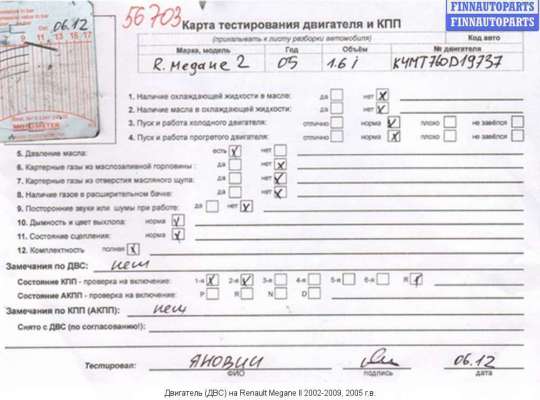 FINNAUTOPARTS
FINNAUTOPARTS
FINNAUTOPARTS
06.12
9 11 13 15 17
56703
Карта тестирования двигателя и КПП
(прикалывать к листу разборки автомобиля)
Код авто
Марка, модель Год Объём № двигателя
R. Megane 2 05 1.6 i K4MT760D19737
1. Наличие охлаждающей жидкости в масле: да нет x
2. Наличие масла в охлаждающей жидкости: да нет x
3. Пуск и работа холодного двигателя: отлично норма v плохо не завёлся
4. Пуск и работа прогретого двигателя: отлично норма x плохо не завёлся
5. Давление масла: есть v нет
6. Картерные газы из маслозаливной горловины : да нет x
7. Картерные газы из отверстия масляного щупа: да нет v
8. Наличие газов в расширительном бачке: да нет x
9. Посторонние звуки или шумы при работе: да нет v
10. Дымность и цвет выхлопа: норма v
11. Состояние сцепления: норма v
12. Комплектность полная x
Замечания по ДВС: нет
Состояние КПП - проверка на включение: 1-я x 2-я v 3-я 4-я 5-я 6-я R
Состояние АКПП - проверка на включение: P R N D
Замечания по КПП (АКПП): нет
Снято с ДВС (по согласованию!):
Тестировал: ЯНОВИЧ 06.12
ФИО подпись дата
Двигатель (ДВС) на Renault Megane II 2002-2009, 2005 г.в.